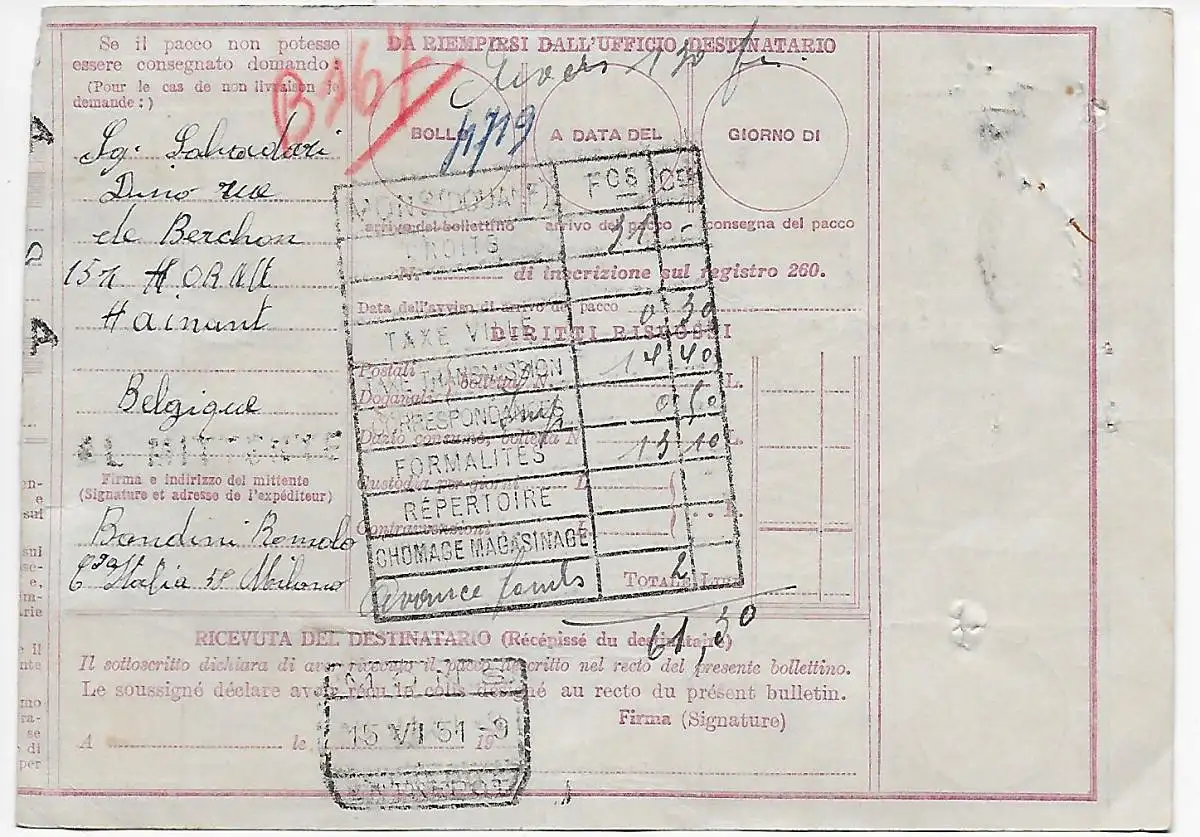 Se il pacco non potesse
essere consegnato domando:
(Pour le cas de non livraison je
demande:)
Sg.
Dino rue
de Berchon
Hainaut
Belgique
AL MITTENTE
Firma e indirizzo del mittente
(Signature et adresse de l'expéditeur)
Bandini Romolo
Cso Italia
DA RIEMPIRSI DALL'UFFICIO DESTINATARIO
130
4719
BOLLO
A DATA DEL
GIORNO DI
arrivo del bollettino
arrivo del pacco
consegna del pacco
N. di inscrizione sul registro 260.
Data dell'avviso di arrivo del pacco
DIRITTI RISCOSSI
Postali
Doganali, bolletta N. L.
Dazio consumo, bolletta N L.
Custodia per giorni L
Contravvenzioni L
TOTALE LIRE
MONS (DOUANE) FCS CS
DROITS 31 -
TAXE VILLE 0 30
TAXE TRANSMISSION 14 40
CORRESPONDANCES 0 60
FORMALITÉS 13 10
RÉPERTOIRE
CHOMAGE MAGASINAGE
avance 2
61,30
RICEVUTA DEL DESTINATARIO (Récépissé du destinataire)
Il sottoscritto dichiara di aver ricevuto il pacco descritto nel recto del presente bollettino.
Le soussigné déclare avoir reçu le colis désigné au recto du présent bulletin.
Firma (Signature)
A le 19
MONS
15 VI 51 -9
ENTREPOT